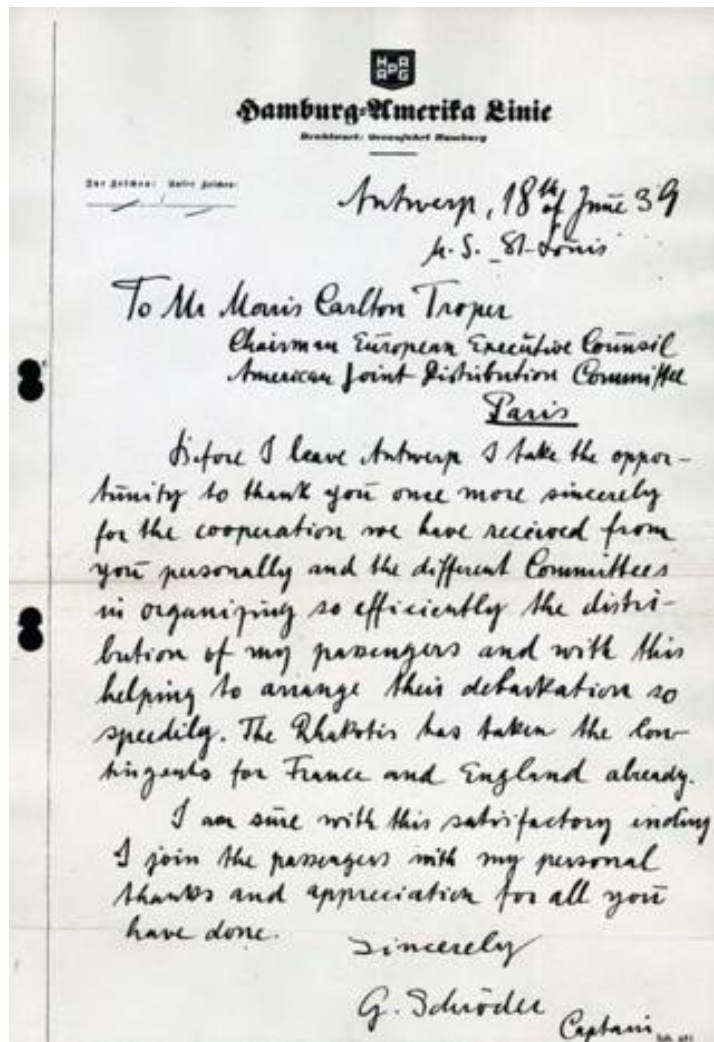 HAPAG
Hamburg-Amerika Linie
Drahtwort: Ozeanfahrt Hamburg
Ihr Zeichen: Unsere Zeichen:
Antwerp, 18th of June 39
M.S. St. Louis
To Mr Morris Carlton Troper
Chairman European Executive Council
American Joint Distribution Committee
Paris
Before I leave Antwerp I take the oppor-
tunity to thank you once more sincerely
for the cooperation we have received from
you personally and the different Committees
in organizing so efficiently the distri-
bution of my passengers and with this
helping to arrange their debarkation so
speedily. The Rhakotis has taken the con-
tingents for France and England already.
I am sure with this satisfactory ending
I join the passengers with my personal
thanks and appreciation for all you
have done.
Sincerely
G. Schröder
Captain